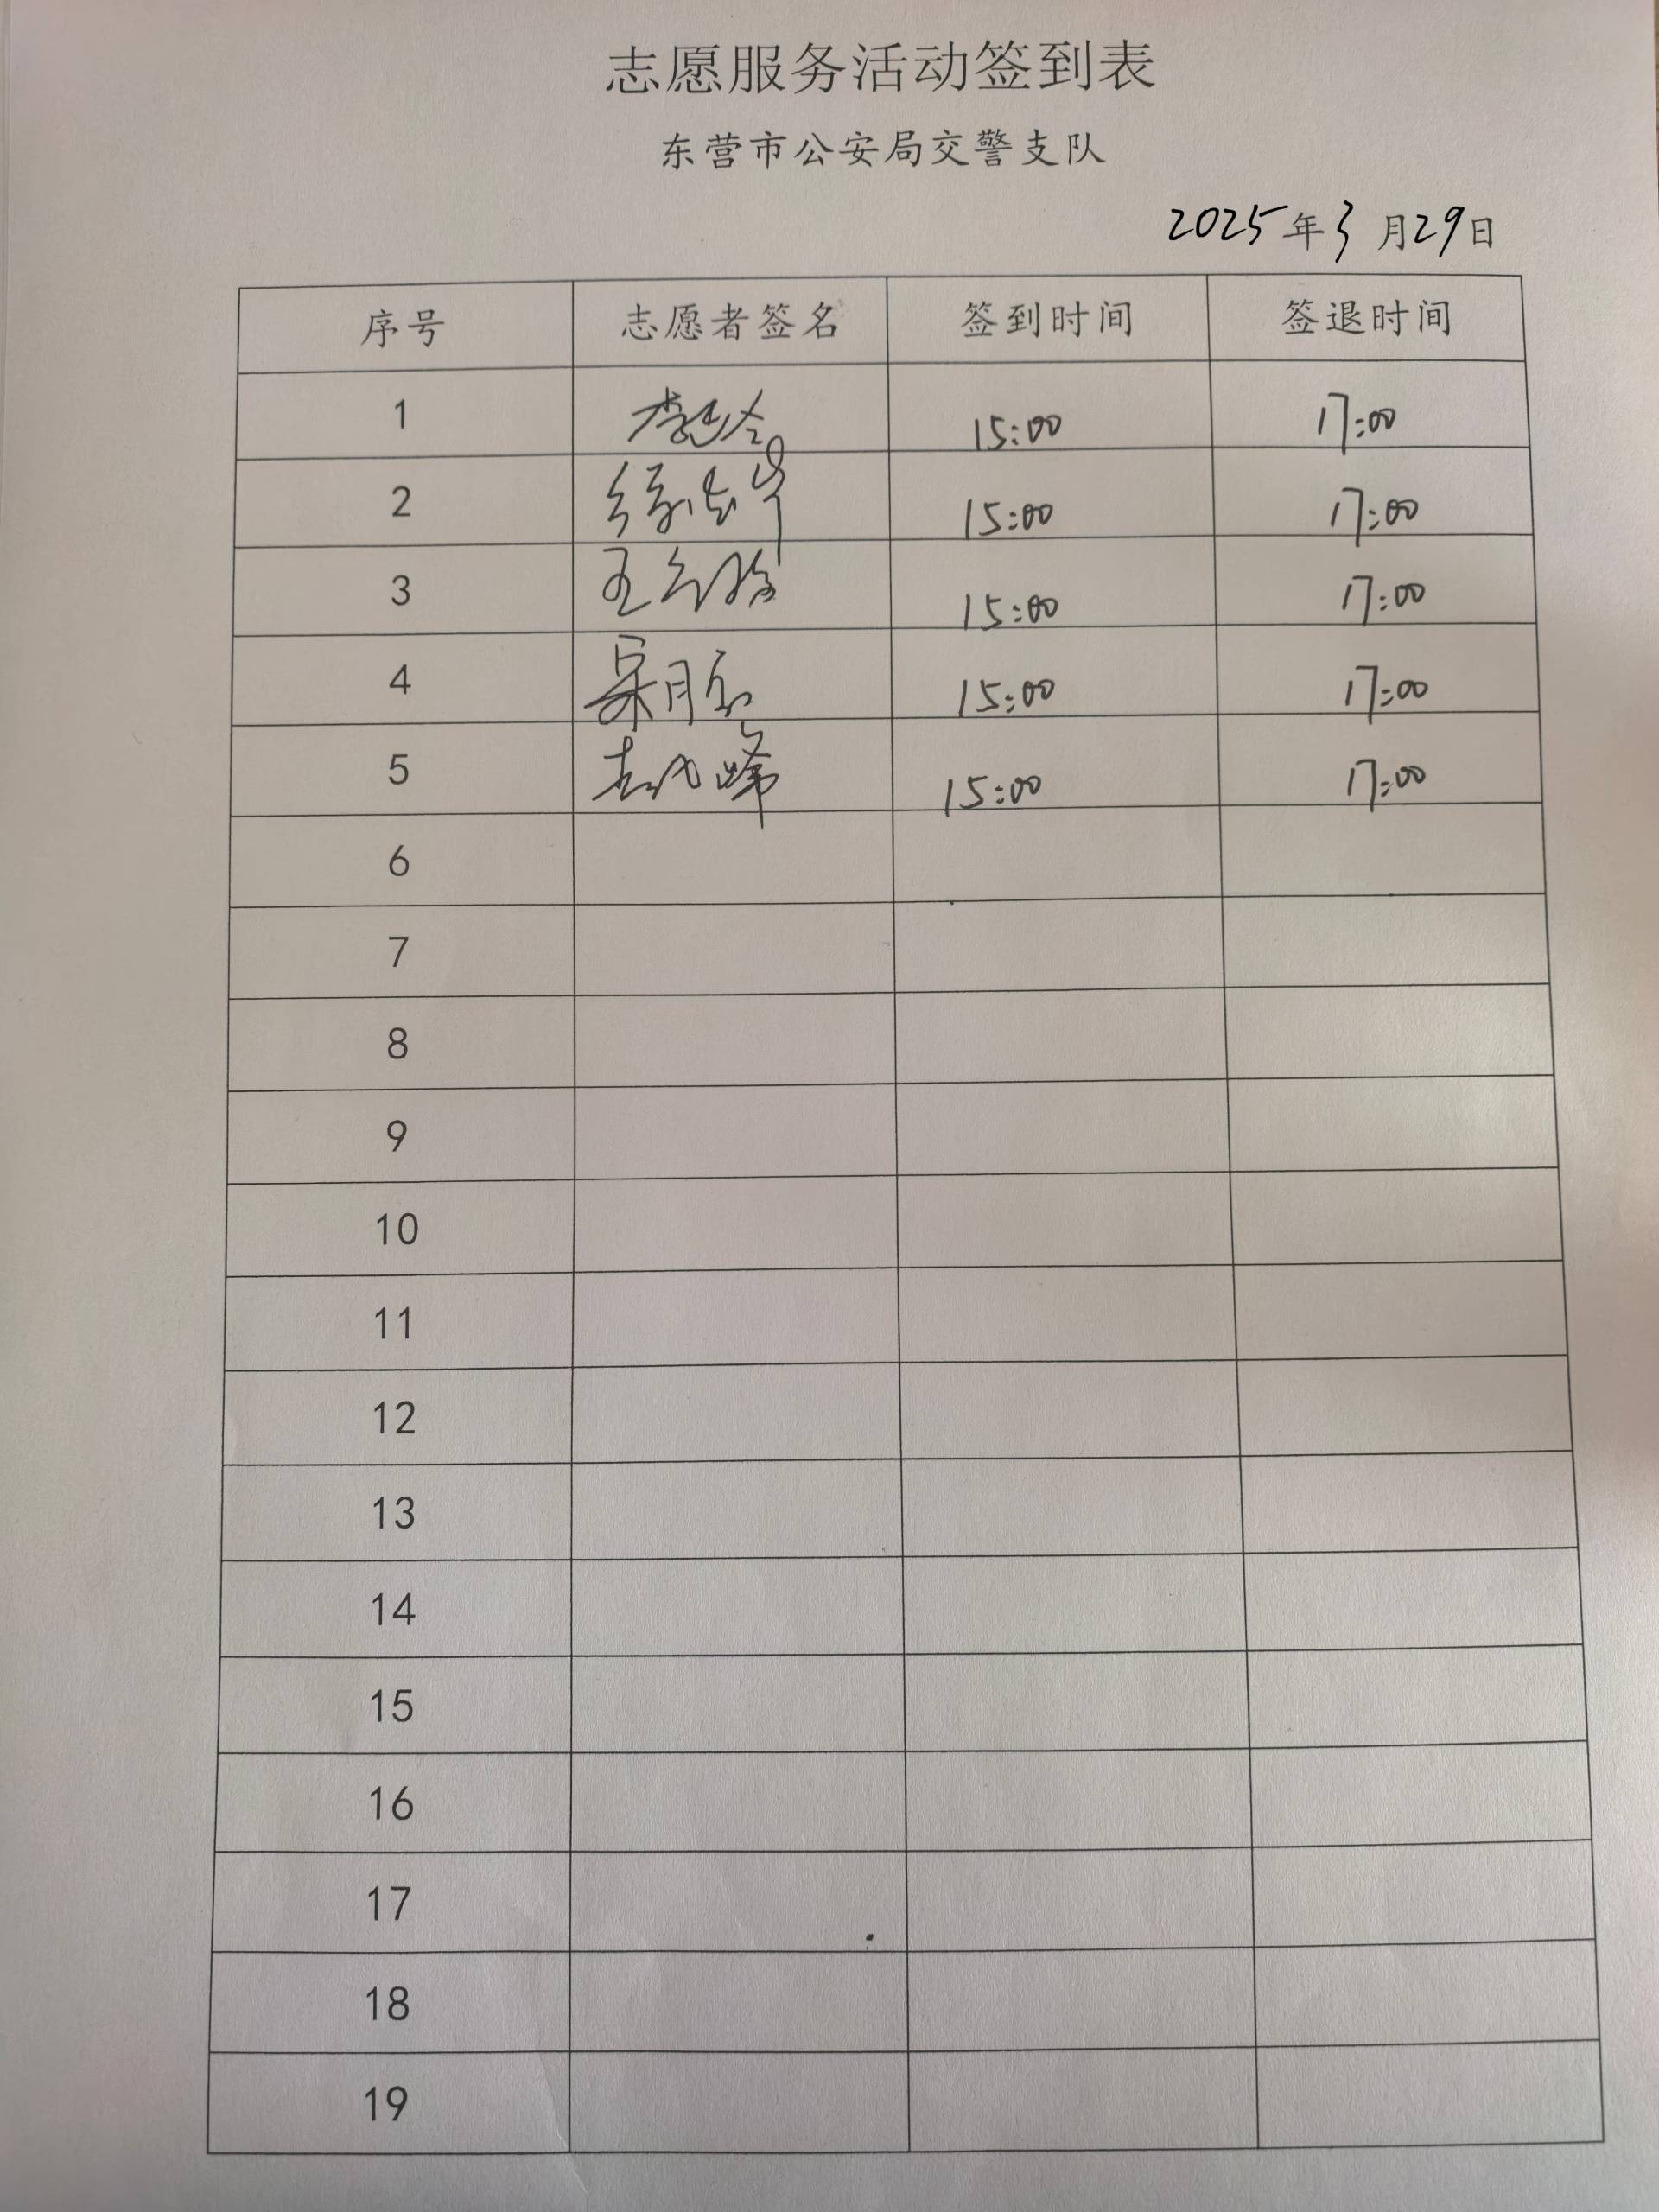 志愿服务活动签到表
东营市公安局交警支队
2025年3月29日
序号 志愿者签名 签到时间 签退时间
1 15:00 17:00
2 15:00 17:00
3 王 15:00 17:00
4 15:00 17:00
5 峰 15:00 17:00
6
7
8
9
10
11
12
13
14
15
16
17
18
19